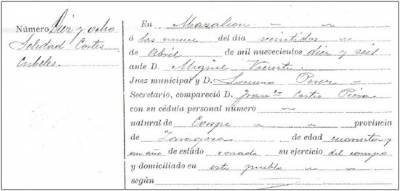 Número Diez y ocho
Soledad Cortés
En Mazaleon
á las nueve del día veintidos
de Abril de mil nuevecientos diez y seis
ante D. Miguel
Juez municipal y D. Lorenzo
Secretario, compareció D. Franco Cortés
con su cédula personal número
natural de Caspe provincia
Zaragoza de edad cuarenta y
un año de estado casado su ejercicio del campo
y domiciliado en este pueblo
según